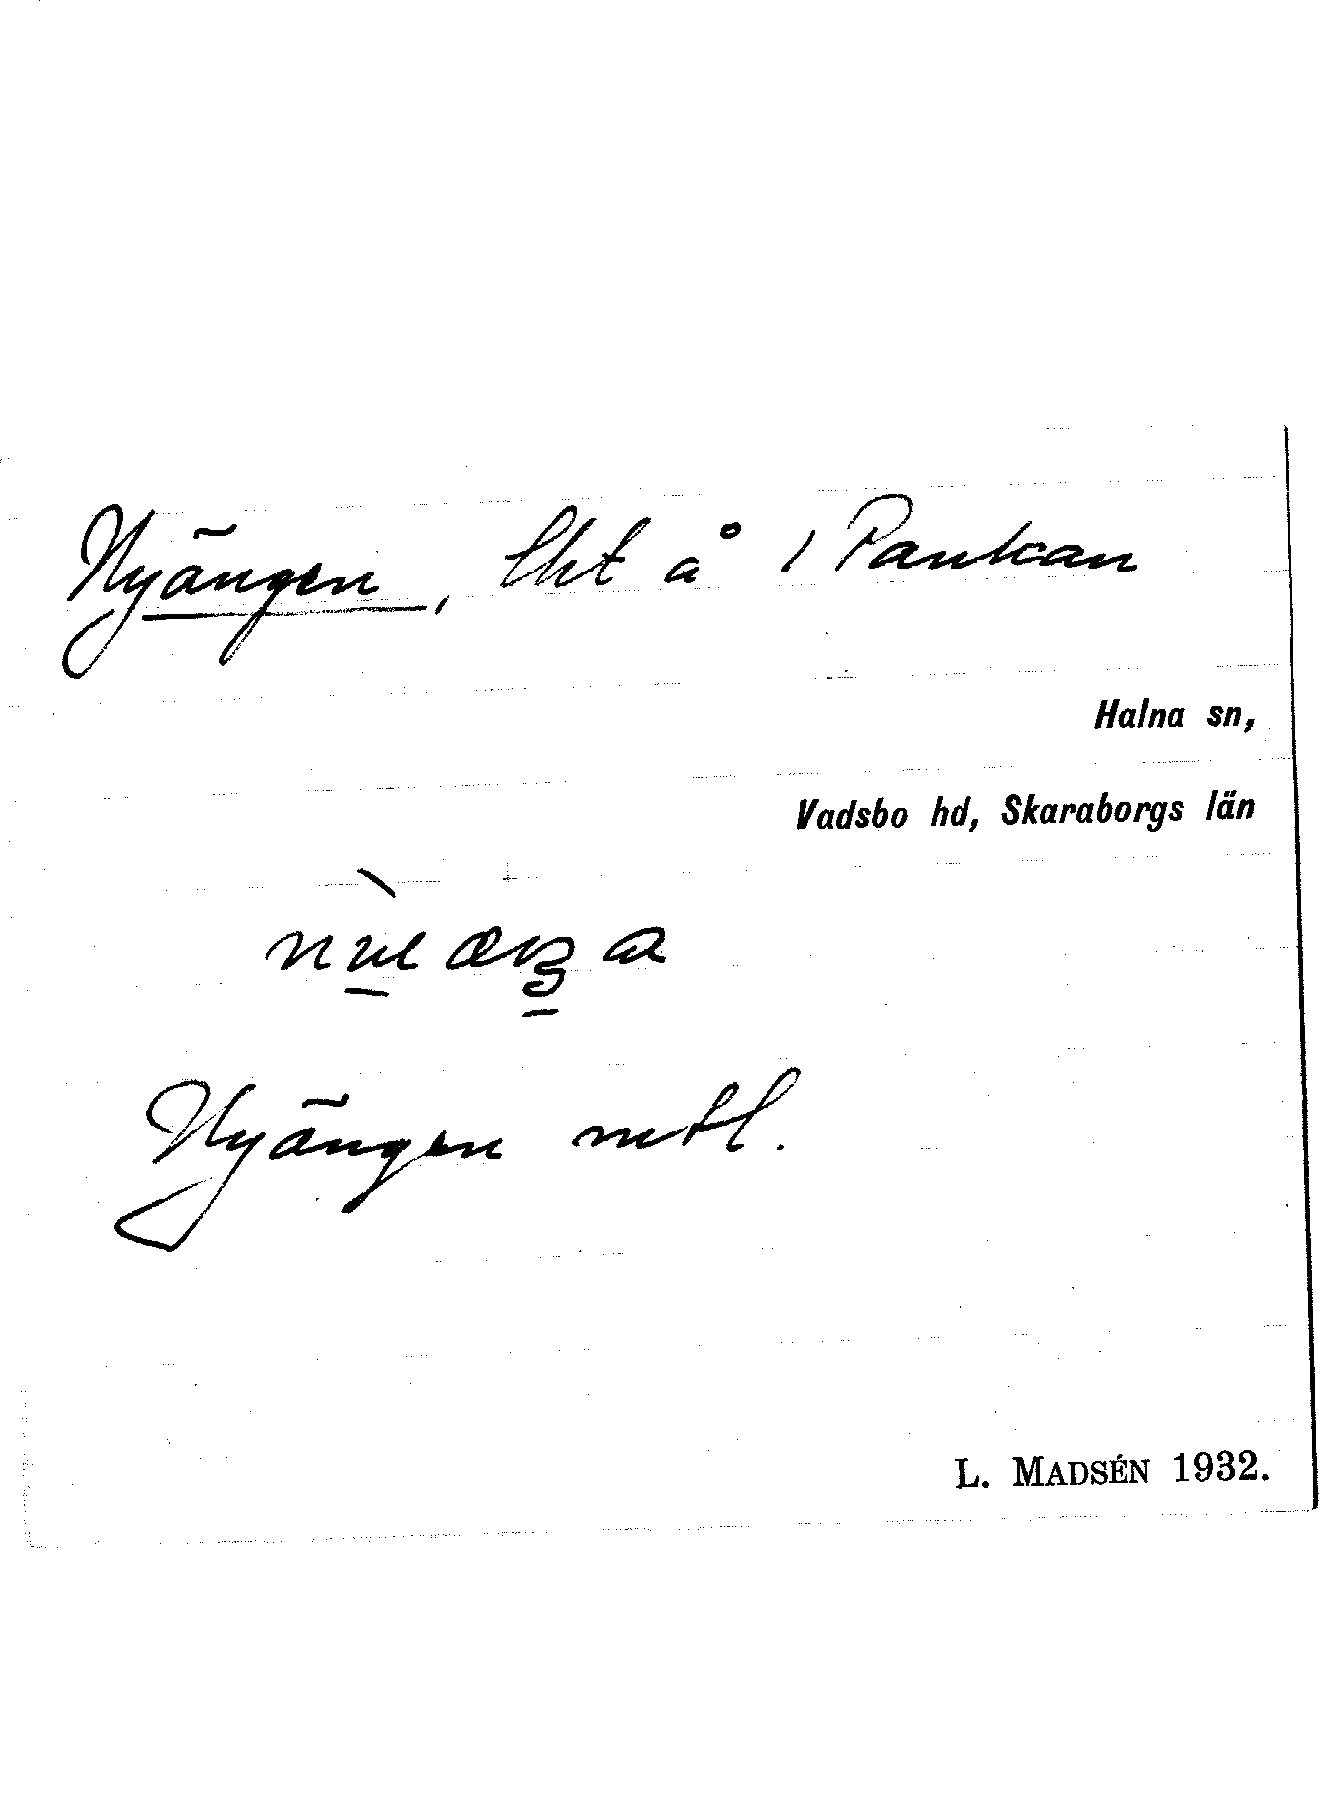 Nyängen, lht å 1 Pankan
Halna sn,
Vadsbo hd, Skaraborgs län
Nyängen mtl.
L. MADSÉN 1932.